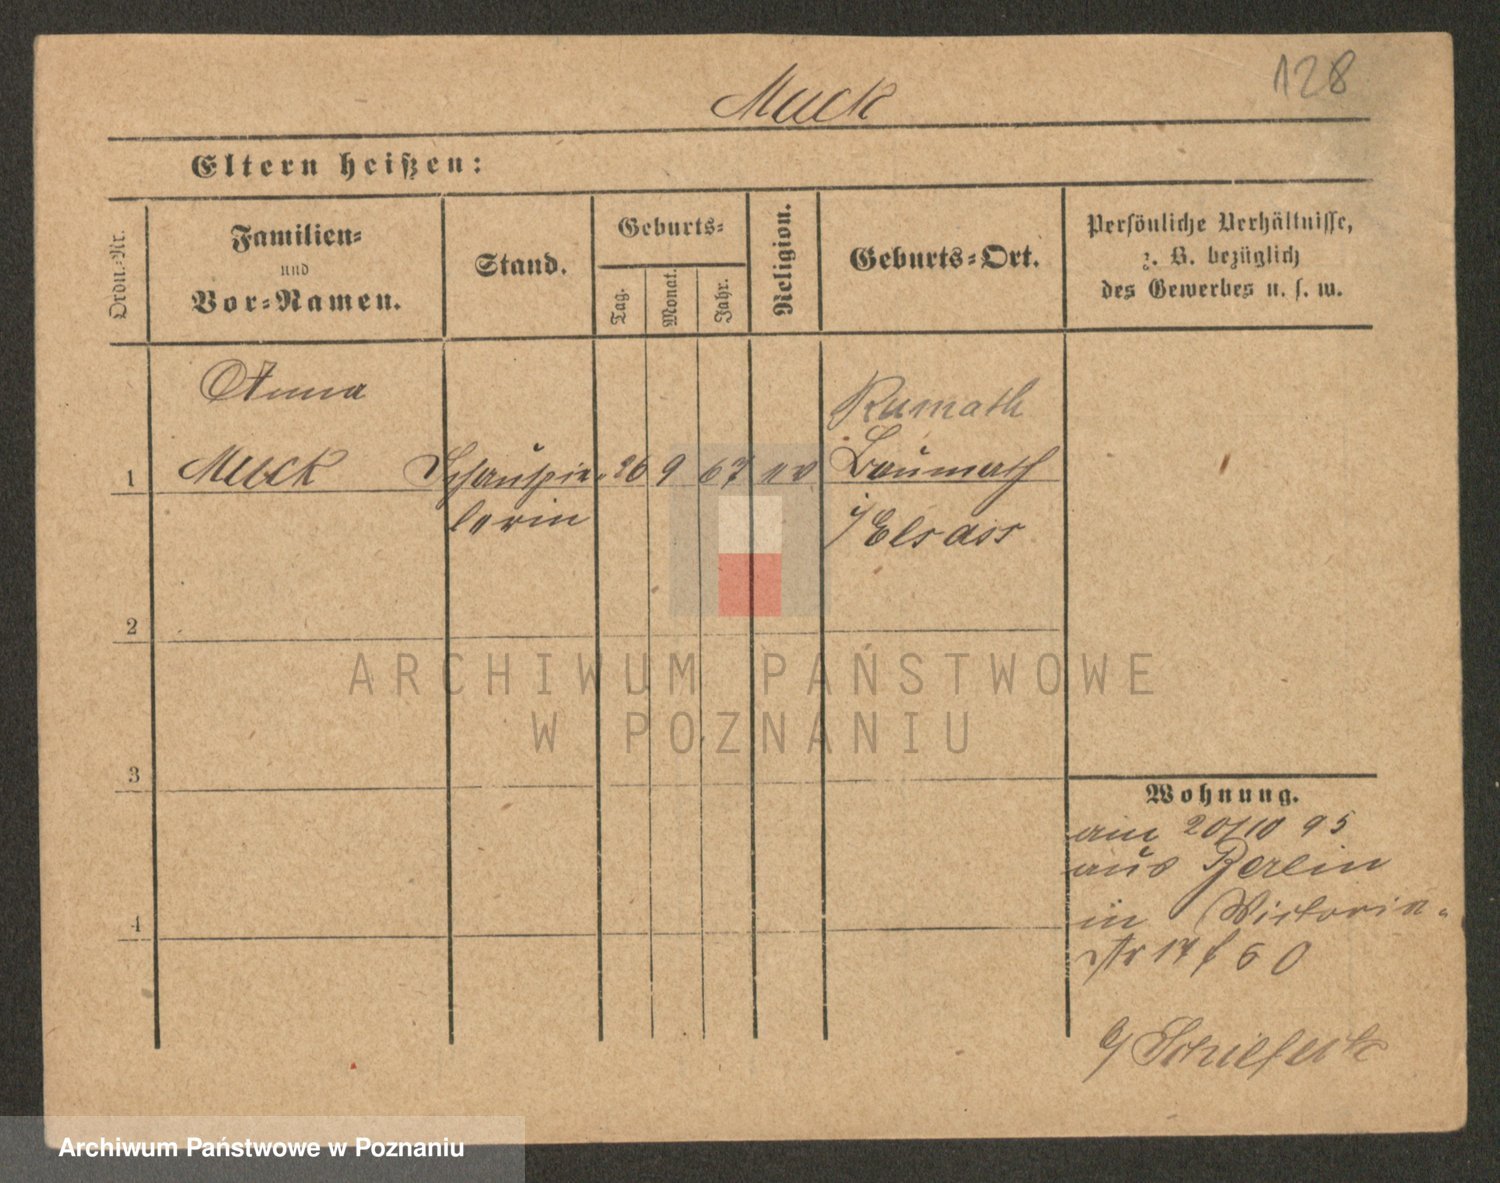 128
Muck
Eltern heißen:
Ordn.-Nr.
Familien-
und
Vor-Namen.
Stand.
Geburts-
Tag.
Monat.
Jahr.
Religion.
Geburts-Ort.
Persönliche Verhältnisse,
z. B. bezüglich
des Gewerbes u. s. w.
Anna
Rumath
1 Muck Schauspie- 26 9 67 ev Baumath
lerin i/ Elsass
2
3
4
Wohnung.
am 20/10 95
aus Berlin
in Victoria-
str 17
ARCHIWUM PAŃSTWOWE
W POZNANIU
Archiwum Państwowe w Poznaniu